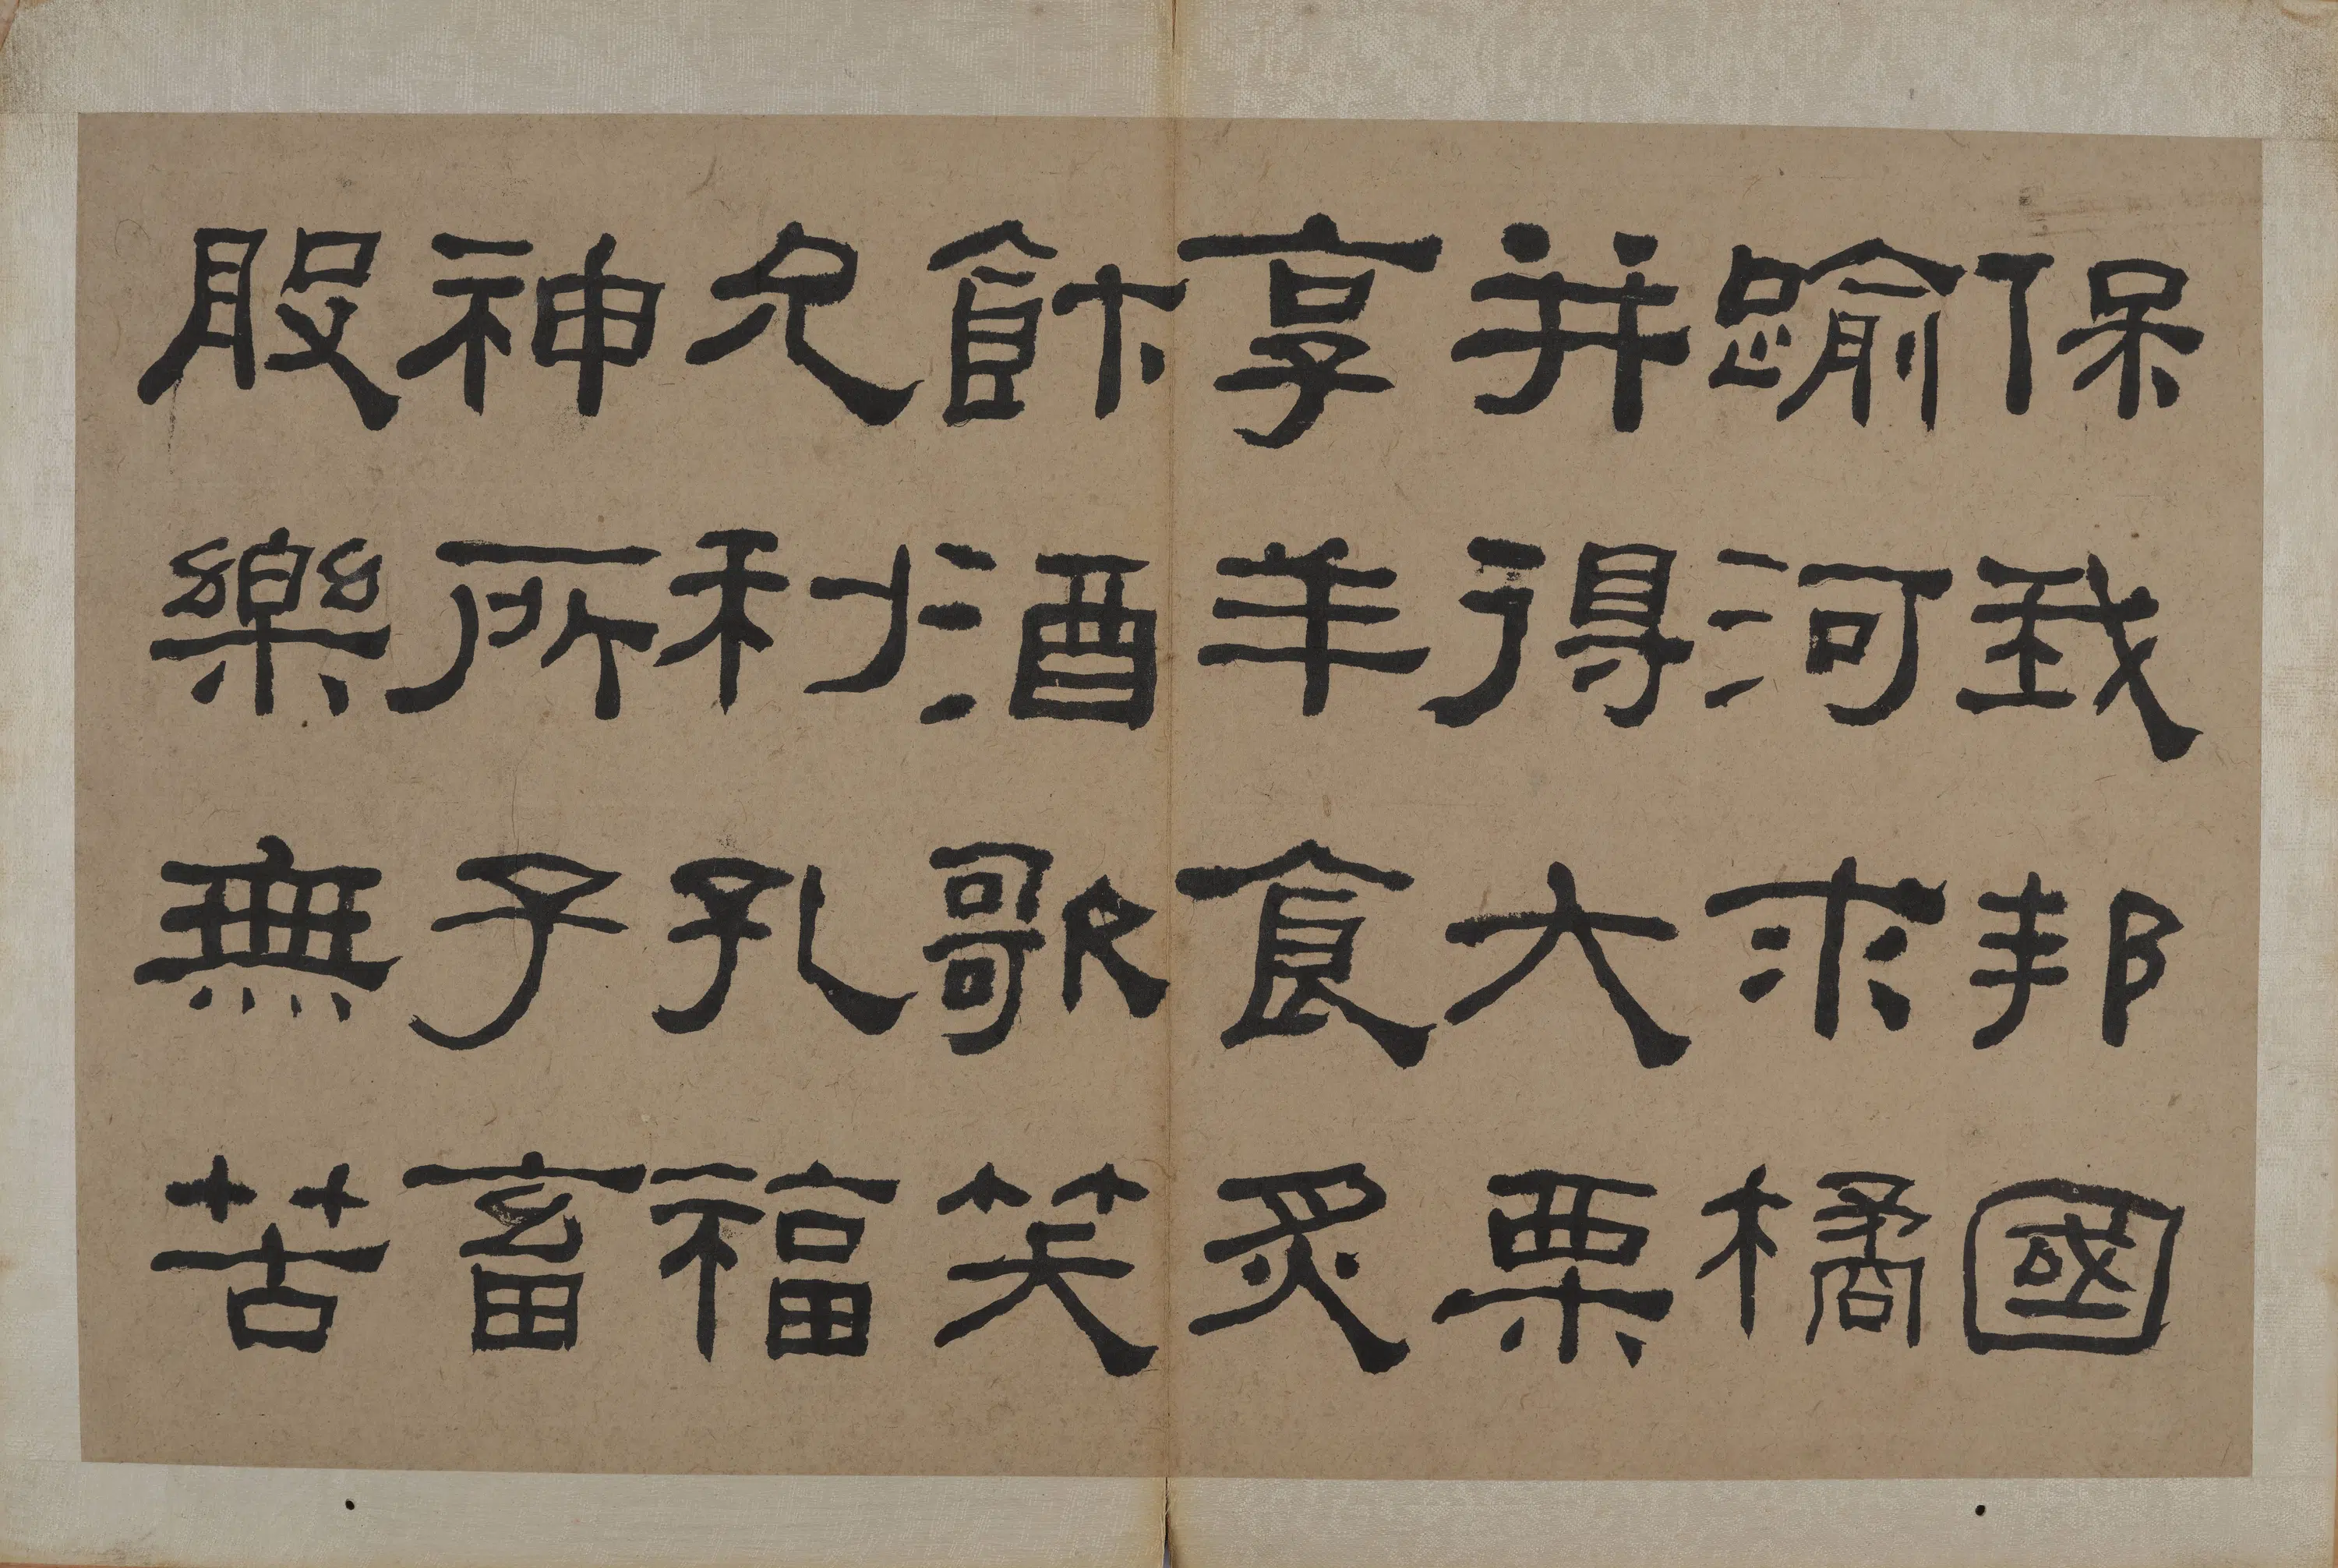 保我邦國
踰河求橘
并得大栗
享羊食炙
飰酒歌笑
允利孔福
神所子畜
般樂無苦